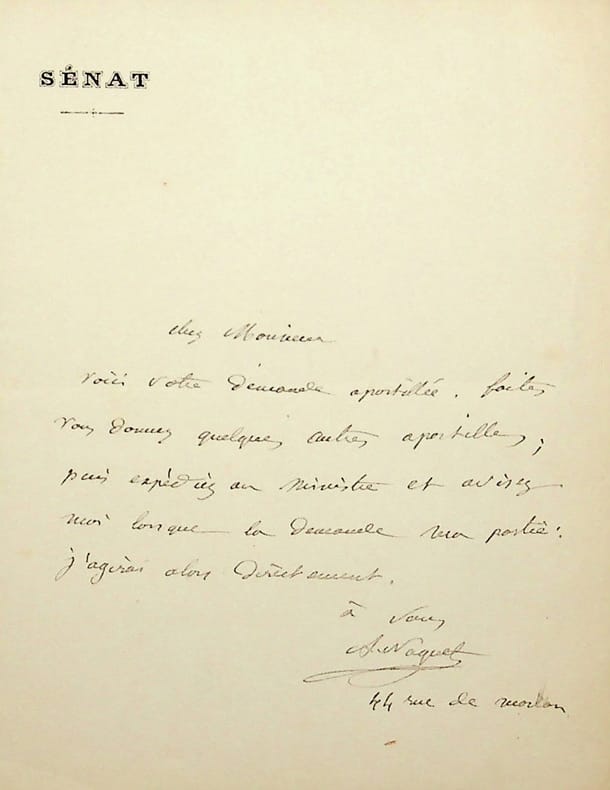 SÉNAT
cher Monsieur
voici votre demande apostillée. faites
vous donner quelques autres apostilles,
puis expédiez au ministre et avisez
moi lorsque la demande sera partie.
j'agirai alors directement.
à vous
A. Naquet
44 rue de